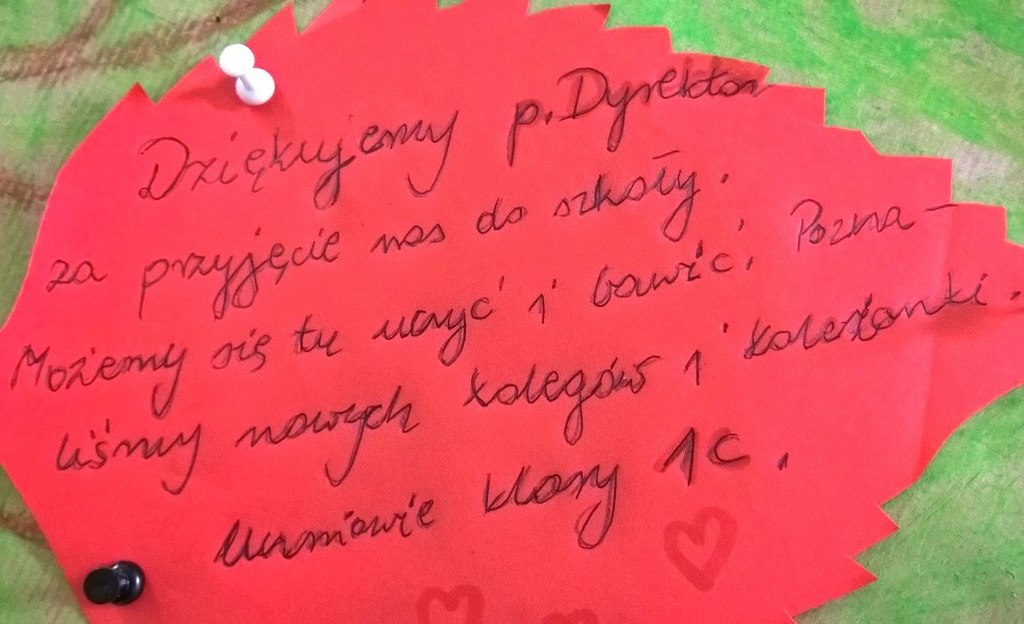 Dziękujemy p. Dyrektor
za przyjęcie nas do szkoły.
Możemy się tu uczyć i bawić. Pozna-
liśmy nowych kolegów i koleżanki.
Uczniowie klasy 1c.